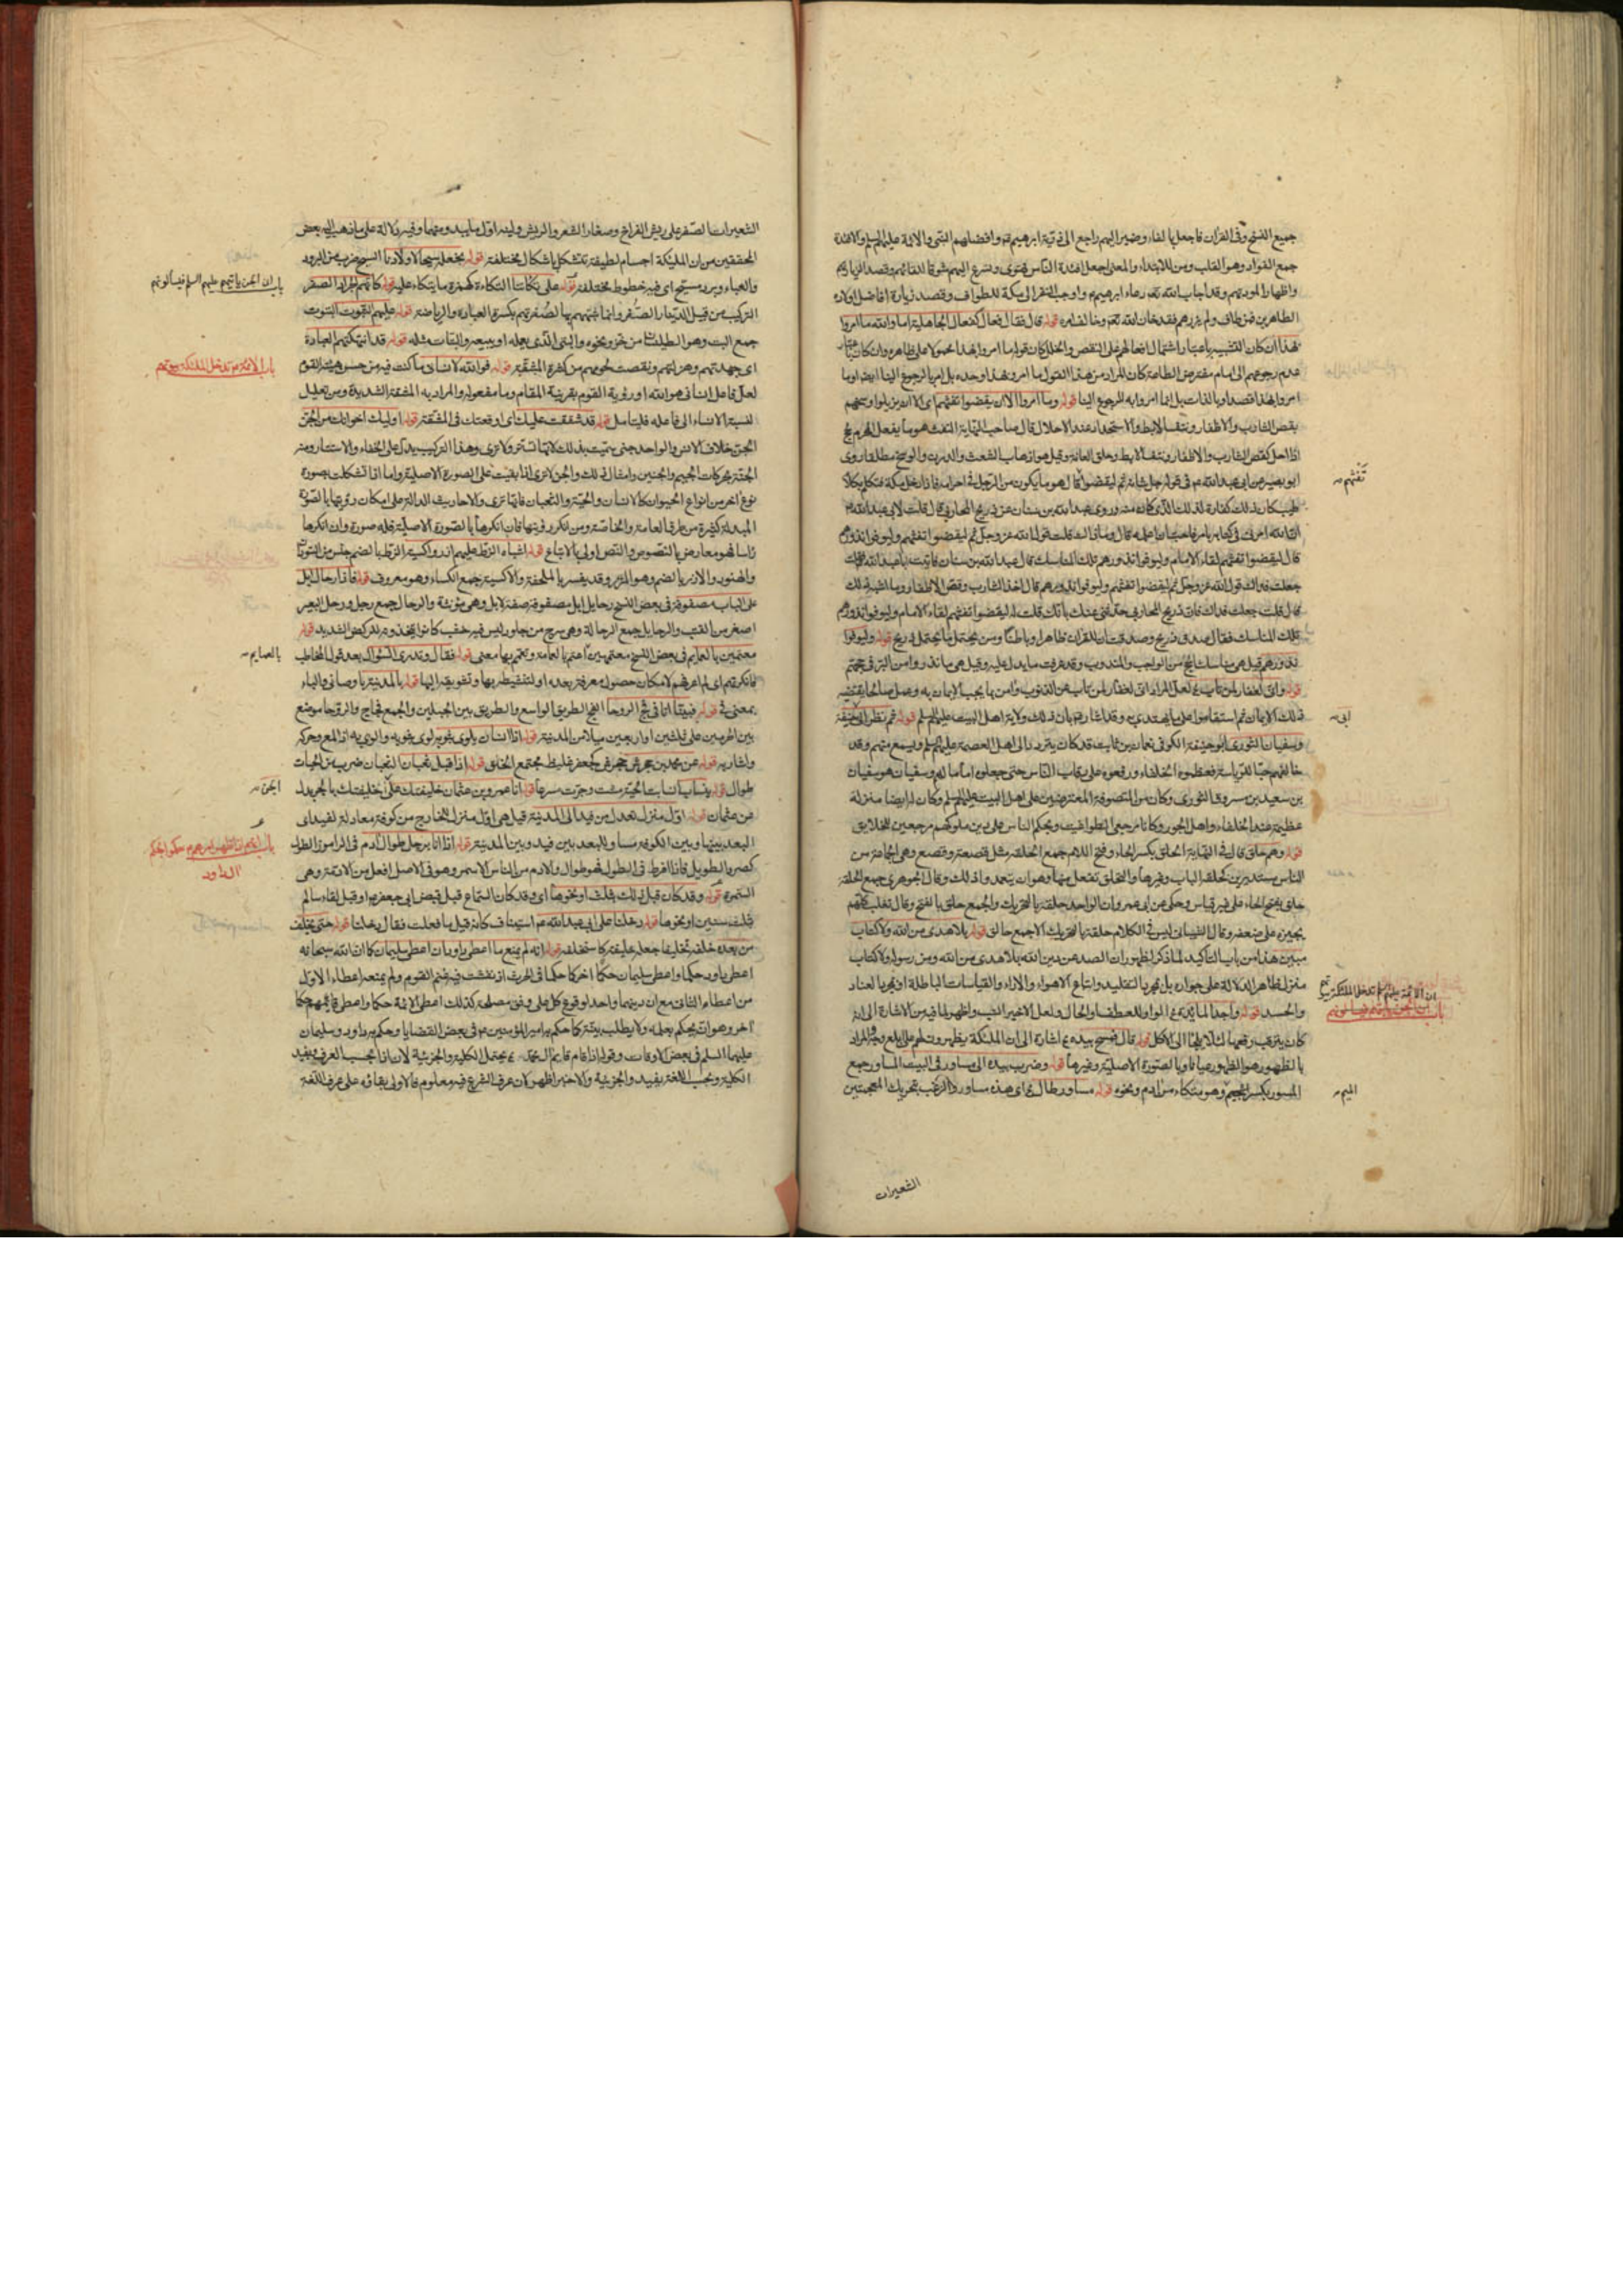 جميع النسخ وفى القران فاجعل بالفاء وضمير اليهم راجع الى ذرية ابرهيم عم وافضلهم النبى والائمة عليهم السلم والافئدة
جمع الفواد وهو القلب ومن للابتداء والمعنى اجعل افئدة الناس تهوى وتسرع اليهم شوقا للقائهم وقصدا لزيارتهم
واظهارا لمودتهم وقد اجاب الله تعم دعاء ابرهيم عم واوجب النفر الى مكة للطواف وقصد زيارة افاضل اولاده
الطاهرين فمن طاف ولم يزرهم فقد خان الله تعم وخالف امره قوله قال فقال فعال كفعال الجاهلية اما والله ما امروا
بهذا ان كان التشبيه باعتبار اشتمال افعالهم على النقص والخلل كان قوله ما امروا بهذا محمولا على ظاهره وان كان باعتبار
عدم رجوعهم الى امام مفترض الطاعة كان المراد من هذا القول ما امروا بهذا وحده بل امر بالرجوع الينا ايضا او ما
امروا بهذا قصدا وبالذات بل انما امروا به للرجوع الينا قوله وما امروا الا ان يقضوا تفثهم اى الا ان يزيلوا وسخهم
بقص الشارب والاظفار ونتف الابط والاستحداد عند الاحلال قال صاحب النهاية التفث هو ما يفعل المحرم بالحج
اذا احل كقص الشارب والاظفار ونتف الابط وحلق العانة وقيل هو اذهاب الشعث والدرن والوسخ مطلقا روى
ابو بصير عن ابى عبد الله عم فى قوله جل شانه ثم ليقضوا قال هو ما يكون من الرجل فى احرامه فاذا دخل مكة فتكلم بكلام
تفثهم
طيب كان ذلك كفارة لذلك الذى كان منه وروى عبد الله بن سنان عن ذريح المحاربى قال قلت لابى عبد الله عم
ان الله امرنى فى كتابه بامر فاحب ان اعمله قال وما ذاك قلت قول الله عز وجل ثم ليقضوا تفثهم وليوفوا نذورهم
قال ليقضوا تفثهم لقاء الامام وليوفوا نذورهم تلك المناسك قال عبد الله بن سنان فاتيت ابا عبد الله فقلت
جعلت فداك قول الله عز وجل ثم ليقضوا تفثهم وليوفوا نذورهم قال اخذ الشارب وقص الاظفار وما اشبه ذلك
قال قلت جعلت فداك فان ذريح المحاربى حدثنى عنك بانك قلت له ليقضوا تفثهم لقاء الامام وليوفوا نذورهم
تلك المناسك فقال صدق ذريح وصدقت ان للقران ظاهرا وباطنا ومن يحتمل ما يحتمل ذريح قوله وليوفوا
نذورهم قيل هى مناسك الحج من الواجب والمندوب وقد عرفت ما يدل عليه وقيل هى ما نذروا من البر فى حجهم
قوله وانى لغفار لمن تاب لعل المراد انى لغفار لمن تاب عن الذنوب وامن بما يجب الايمان به وعمل صالحا يقتضيه
ذلك الايمان ثم استقاموا على ما يهتدى به وقد اشار عم بان ذلك ولاية اهل البيت عليهم السلم قوله ثم نظر الى حنيفة
ابى
وسفيان الثورى ابو حنيفة الكوفى نعمان بن ثابت قد كان يتردد الى اهل العصمة عليهم السلم ويسمع منهم وقد
خالفهم حبا للرياسة فعظموه الخلفاء ورفعوه على رقاب الناس حتى جعلوه اماما لهم وسفيان هو سفيان
بن سعيد بن مسروق الثورى وكان من المتصوفة المعترضين على اهل البيت عليهم السلم وكان له ايضا منزلة
عظيمة عند الخلفاء واهل الجور وكانا مرجعى الطواغيت ويحكم الناس على دين ملوكهم مرجعين للخلايق
قوله وهم حلق قال فى النهاية الحلق بكسر الحاء وفتح اللام جمع الحلقة مثل قصعة وقصع وهى الجماعة من
الناس مستديرين كحلقة الباب وغيرها والتحلق تفعل منها وهو ان يتعمدوا ذلك وقال الجوهرى جمع الحلقة
حلق بفتح الحاء على غير قياس وحكى عن ابى عمرو ان الواحد حلقة بالتحريك والجمع حلق بالفتح وقال ثعلب كلهم
يجيزه على ضعفه وقال الشيبانى ليس فى الكلام حلقة بالتحريك الا جمع حالق قوله بلا هدى من الله ولا كتاب
مبين هذا من باب التاكيد لما ذكر لظهور ان الصد عن دين الله بلا هدى من الله ومن رسوله ولا كتاب
منزل ظاهر الدلالة على جوازه بل بمجرد التقليد واتباع الاهواء والاراء والقياسات الباطلة او بمجرد العناد
والحسد
ان الائمة عليهم السلم تدخل الملئكة بيوتهم
قال فمسح بيده اشارة الى ان الملئكة يظهرون لهم
بالظهور هو الظهور عيانا وبالصورة الاصلية وغيرها قوله وضرب بيده الى مساور فى البيت المساور جمع
المسور بكسر الميم وهو متكاء من ادم ونحوه قوله مساور طال
الميم
الشعيرات
الشعيرات الصفر على ريش الفراخ وصغار الشعر والريش ولينه اول ما يبدو منهما وفيه دلالة على ما ذهب اليه بعض
المحققين من ان الملئكة اجسام لطيفة تتشكل باشكال مختلفة قوله نجعله سيحا لاولادنا السيح ضرب من البرود
والعباء وبرد مسيح اى فيه خطوط مختلفة قوله على تكائنا التكاءة كهمزة ما يتكاء عليه قوله كانهم الجراد الصفر
باب ان الجن ياتيهم عليهم السلم فيسالونهم
جمع البت وهو الطيلسان من خز ونحوه والبتى الذى يعمله او يبيعه والبتات مثله قوله قد انتهكتهم العبادة
اى جهدتهم وهزلتهم ونقصت لحومهم من كثرة المشقة قوله فوالله لانسانى ما كنت فيه من حسن هيئة القوم
باب الائمة عم تدخل الملئكة بيوتهم
لعل فاعل انسانى هو الله او رؤية القوم بقرينة المقام وما مفعوله والمراد به المشقة الشديدة ومن تعليل
لنسبة الانساء الى فاعله فليتامل قوله قد شققت عليك اى اوقعتك فى المشقة قوله اوليك اخوانك من الجن
الجن خلاف الانس والواحد جنى سميت بذلك لانها تستتر ولا ترى وهذا التركيب يدل على الخفاء والاستتار ومنه
نوع اخر من انواع الحيوان كالانسان والحية والثعبان فانها ترى والاحاديث الدالة على امكان رؤيتها بالصورة
المبدلة كثيرة من طرق العامة والخاصة ومن انكر رؤيتها فان انكرها بالصورة الاصلية فله صورة وان انكرها
راسا فهو معارض بالنصوص والنص اولى بالاتباع قوله اشباه الزط عليهم ازر واكسية الزط بالضم جنس من السودان
والهنود والازر بالضم وهو المئزر وقد يفسر بالملحفة والاكسية جمع الكساء وهو معروف قوله فاذا رحال ابل
على الباب مصفوفة فى بعض النسخ رحايل ابل مصفوفة صفة لابل وهى مؤنثة والرحال جمع رحل ورحل البعير
اصغر من القتب والرحايل جمع الرحالة وهى سرج من جلود ليس فيه خشب كانوا يتخذونه للركض الشديد قوله
معتمين بالعمايم فى بعض النسخ معتمين اعتم بالعمامة وتعمم بها بمعنى قوله فقال وتدرى السؤال بعد قول المخاطب
بالعمايم
فانكرتهم اى لم اعرفهم لامكان حصول معرفته بعده او لتنشيطه بها وتشويقه اليها قوله بالمدينة باوصانى والباء
بمعنى فى قوله فبينا انا فى فج الروحا الفج الطريق الواسع والطريق بين الجبلين والجمع فجاج والروحا موضع
بين الحرمين على ثلثين او اربعين ميلا من المدينة قوله اذا انسان يلوى بثوبه لوى بثوبه والوى به اذا لمع وحركه
واشار به قوله عن محمد بن جحرش جحرش كجعفر غليظ مجتمع الخلق قوله اذا قبل ثعبان الثعبان ضرب من الحيات
طوال قوله ينساب انسابت الحية مشت وجرت سرعا قوله انا عمرو بن عثمان خليفتك على خليفتك بالجر بدل
الجن
من عثمان قوله اول منزل تعدل من فيد الى المدينة قيل هى اول منزل للخارج من كوفة معادلة لفيد اى
البعد بينها وبين الكوفة مساو للبعد بين فيد وبين المدينة قوله اذا انا برجل طوال ادم
باب فى الائمة انهم اذا ظهر امرهم حكموا بحكم
ال داود
كصرد الطويل فاذا افرط فى الطول فهو طوال والادم من الناس الاسمر وهو فى الاصل افعل من الادمة وهى
السمرة قوله وقد كان قبل ذلك بثلث او نحوها اى وقد كان السماع قبل قبض ابى جعفر عم او قبل لقاء سالم
بثلث سنين او نحوها قوله دخلنا على ابى عبد الله عم استيناف كانه قيل ما فعلت فقال دخلنا قوله حتى يخلف
من بعده خلفه تخليفا جعله خليفته كاستخلفه قوله انه لم يمنع ما اعطى داود ان اعطى سليمان كما ان الله سبحانه
اعطى داود حكما واعطى سليمان حكما اخر كما حكما فى الحرث اذ نفشت فيه غنم القوم ولم يمنعه اعطاء الاول
من اعطاء الثانى مع ان دينهما واحد لوقوع كل على وفق مصلحة كذلك اعطى الائمة حكما واعطى قائمهم حكما
اخر وهو ان يحكم بعلمه ولا يطلب بينة كما حكم به امير المؤمنين عم فى بعض القضايا وحكم به داود وسليمان
عليهما السلم فى بعض الاوقات وقوله اذا قام قائم ال محمد يحتمل الكلية والجزئية لان اذا بحسب العرف يفيد
الكلية وبحسب اللغة يفيد الجزئية والاخير اظهر لان عرف الشرع فيه معلوم فالاولى بقائه على عرف اللغة